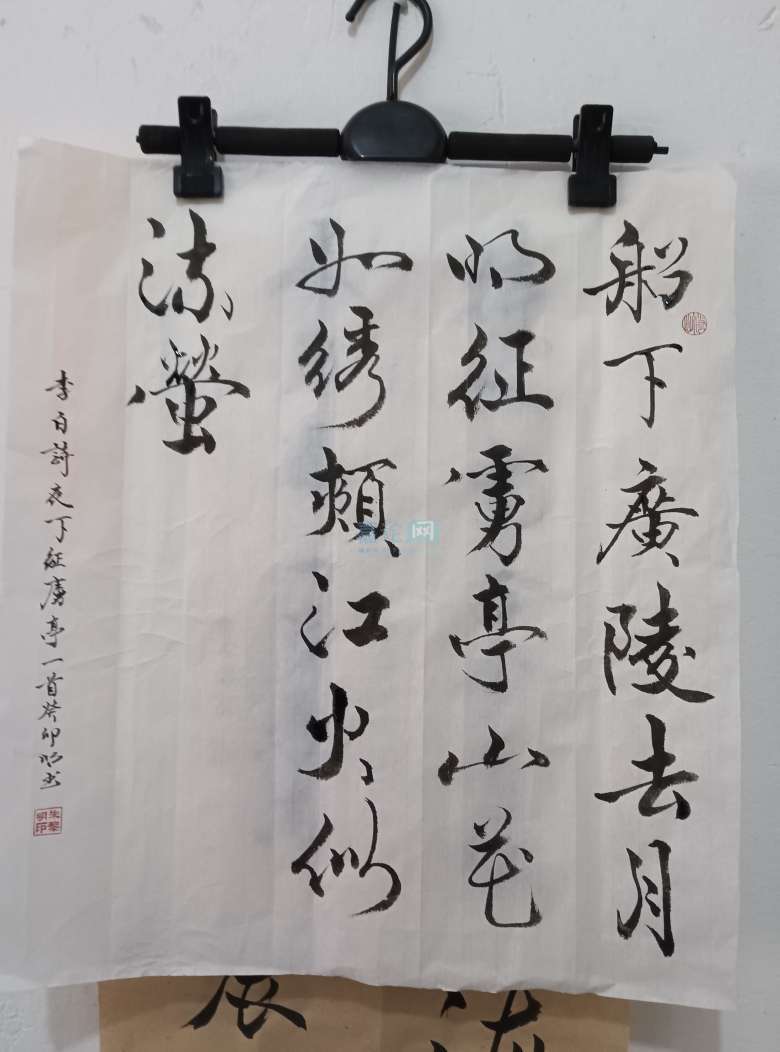 船下廣陵去月
明征虜亭山花
如綉頰江火似
流螢
李白詩夜下征虜亭一首癸卯明书
网